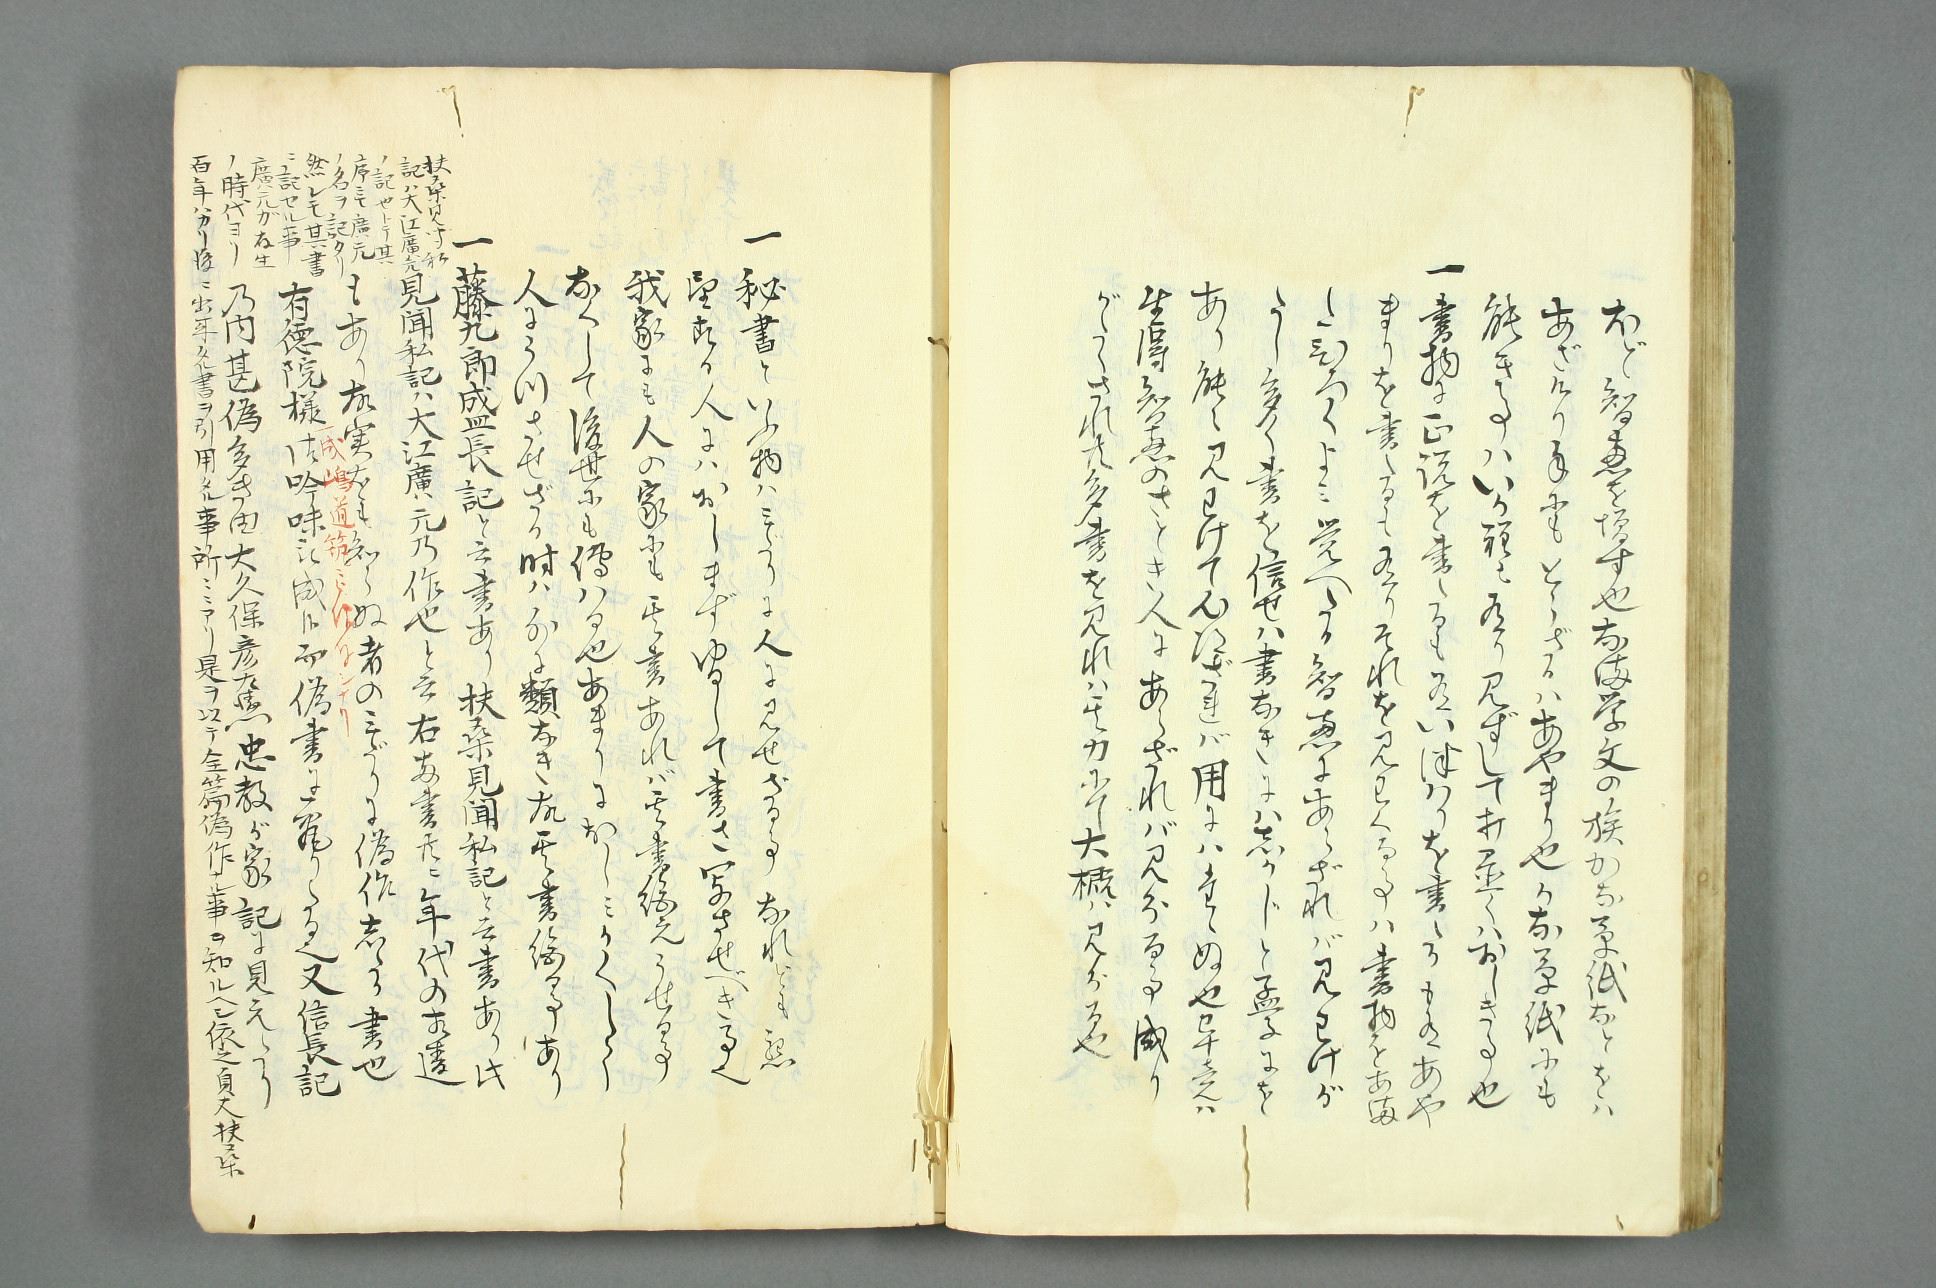 など智恵を増す也なま学文の族かな草紙などをハ
あざけり手にもとらざるハあやまり也かな草紙にも
能き事ハいか程も有り見ずして打置くハおしき事也
一書物に正説を書たるも有いつはりを書たるも有あや
まりを書たるも有りそれを見わくる事ハ書物をあま
たひろくよミ覚へたる智恵にあらざれバ見わけが
たし多く書を信せハ書なきにハしかじと孟子にも
あり能く見わけて心得ざれバ用にハ立ぬ也畢竟ハ
生得智恵のさとき人にあらざれバ見分る事成り
がたしされ共多書を見れハ其力にて大概ハ見分る也
一秘書といふ物ハみだりに人に見せざる事なれども懇
望する人にハおしまずゆるして書き写させべき事也
我家にも人の家にも其書あれバ其書絶えうせる事
なくして後世にも伝ハる也あまりにおしミかくして
人にうつさせざる時ハ外に類なき故其書絶る事あり
一藤九郎成盛長記と云書あり扶桑見聞私記と云書あり此
見聞私記ハ大江廣元乃作也と云右両書共ニ年代の相違
もあり故実をも知らぬ者のみだりに偽作したる書也
成嶋道筑
有徳院様御吟味被成候而偽書に究りたる也又信長記
乃内甚偽多き由大久保彦左衛門忠教が家記に見えたり
扶桑見聞私
記ハ大江廣元
ノ記也トテ其
序ニモ廣元
ノ名ヲ記タリ
然レモ其書
ニ記セル事
廣元ガ存生
ノ時代ヨリ
百年ハカリ後ニ出来タル書ヲ引用タル事所ニミアリ是ヲ以テ全篇偽作ナル事ヲ知ルヘシ依之貞丈扶桑